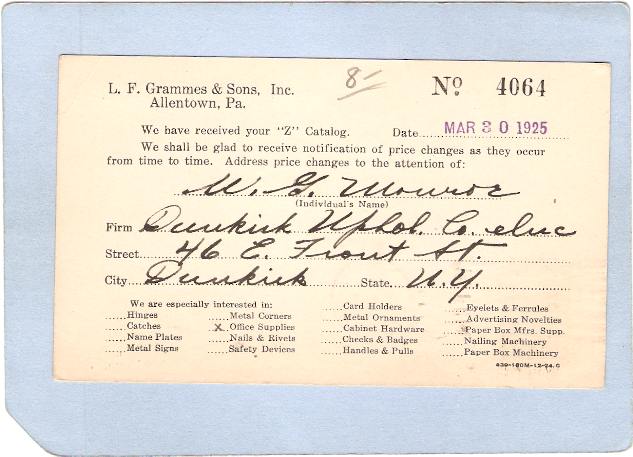 L. F. Grammes & Sons, Inc.
Allentown, Pa.
8-/
No 4064
We have received your "Z" Catalog. Date MAR 30 1925
We shall be glad to receive notification of price changes as they occur
from time to time. Address price changes to the attention of:
W. G. Monroe
(Individual's Name)
Firm Dunkirk Uphol. Co. Inc
Street 46 E. Front St.
City Dunkirk State N.Y.
We are especially interested in:
Hinges
Catches
Name Plates
Metal Signs
Metal Corners
X Office Supplies
Nails & Rivets
Safety Devices
Card Holders
Metal Ornaments
Cabinet Hardware
Checks & Badges
Handles & Pulls
Eyelets & Ferrules
Advertising Novelties
Paper Box Mfrs. Supp.
Nailing Machinery
Paper Box Machinery
639-150M-12-24.C